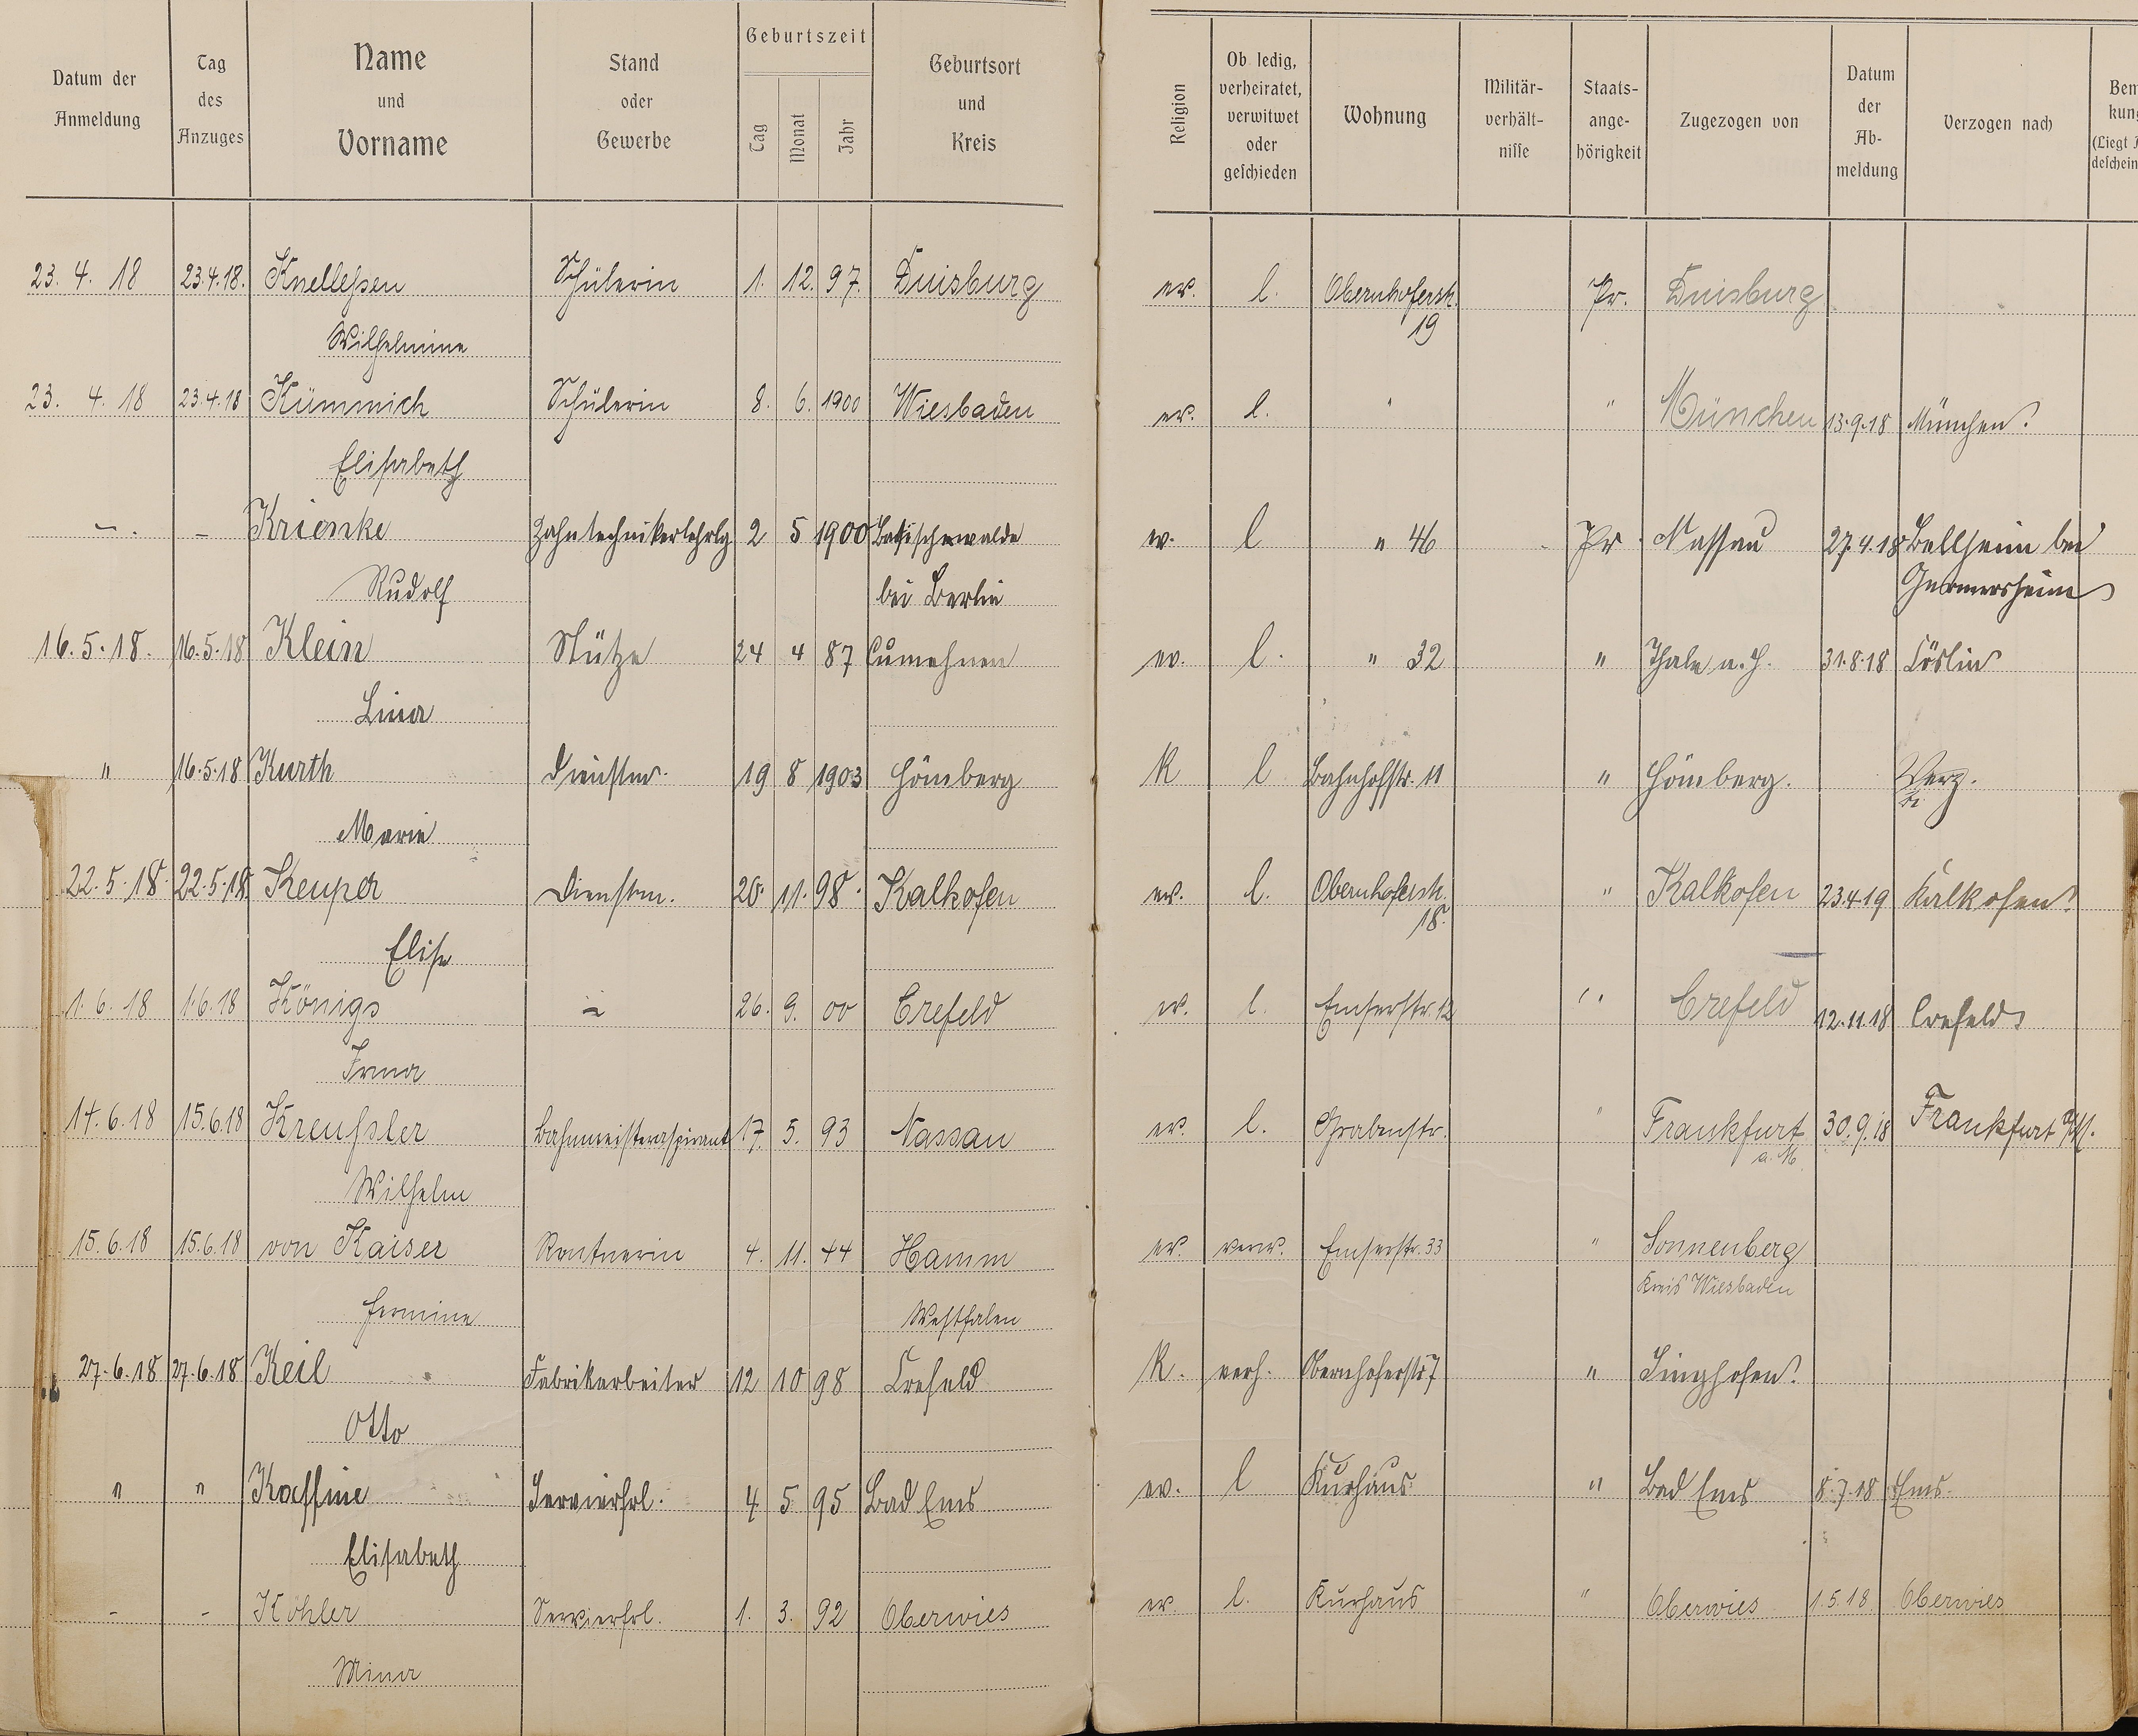 Datum der Anmeldung
Tag des Anzuges
Name und Vorname
Stand oder Gewerbe
Geburtszeit
Tag
Monat
Jahr
Geburtsort und Kreis
Religion
Ob ledig, verheiratet, verwitwet oder geschieden
Wohnung
Militär-verhält-nisse
Staats-ange-hörigkeit
Zugezogen von
Datum der Ab-meldung
Verzogen nach
23. 4. 18 23.4.18. Knelleßen Schülerin 1. 12. 97. Duisburg ev. l. Obernhoferstr. Pr. Duisburg
Wilhelmine 19
23. 4. 18 23.4.18 Kümmich Schülerin 8. 6. 1900 Wiesbaden ev. l. " " München 13.9.18 München.
Elisabeth
- - Krienke Zahntechnikerlehrlg 2 5 1900 ev. l " 46 Pr. Nassau 27.4.18 Bellheim bei
Rudolf bei Berlin Germersheim
16.5.18. 16.5.18 Klein Stütze 24 4 87 Cumehnen ev. l. " 32 " Thale a. H. 31.8.18 Cöslin
Lina
" 16.5.18 Kurth Dienstm. 19 8 1903 Hömberg K l Bahnhofstr. 11 " Hömberg. Verz.
Marie
22.5.18. 22.5.18. Keuper Dienstm. 20. 11. 98. Kalkofen ev. l. Obernhoferstr. " Kalkofen 23.4.19 Kalkofen
Elise 18.
1. 6. 18 1.6.18 Königs - 26. 9. 00 Crefeld ev. l. Emserstr. 12 " Crefeld 12.11.18 Crefeld
Irma
14.6.18 15.6.18 Kreußler Bahnmeisteraspirant 17. 5. 93 Nassau ev. l. Grabenstr. " Frankfurt 30.9.18 Frankfurt
Wilhelm a. M.
15.6.18 15.6.18 von Kaiser Rentnerin 4. 11. 44 Hamm ev. verw. Emserstr. 33 " Sonnenberg
Hermine Westfalen Kreis Wiesbaden
27.6.18 27.6.18 Keil Fabrikarbeiter 12 10 98 Crefeld K. verh. Obernhoferstr 7 " Singhofen.
Otto
" " Kaffine Servierfrl. 4 5 95 Bad Ems ev. l Kurhaus " Bad Ems 8.7.18 Ems.
Elisabeth
- - Köhler Servierfrl. 1. 3. 92 Oberwies ev. l. Kurhaus " Oberwies 1.5.18. Oberwies
Mina